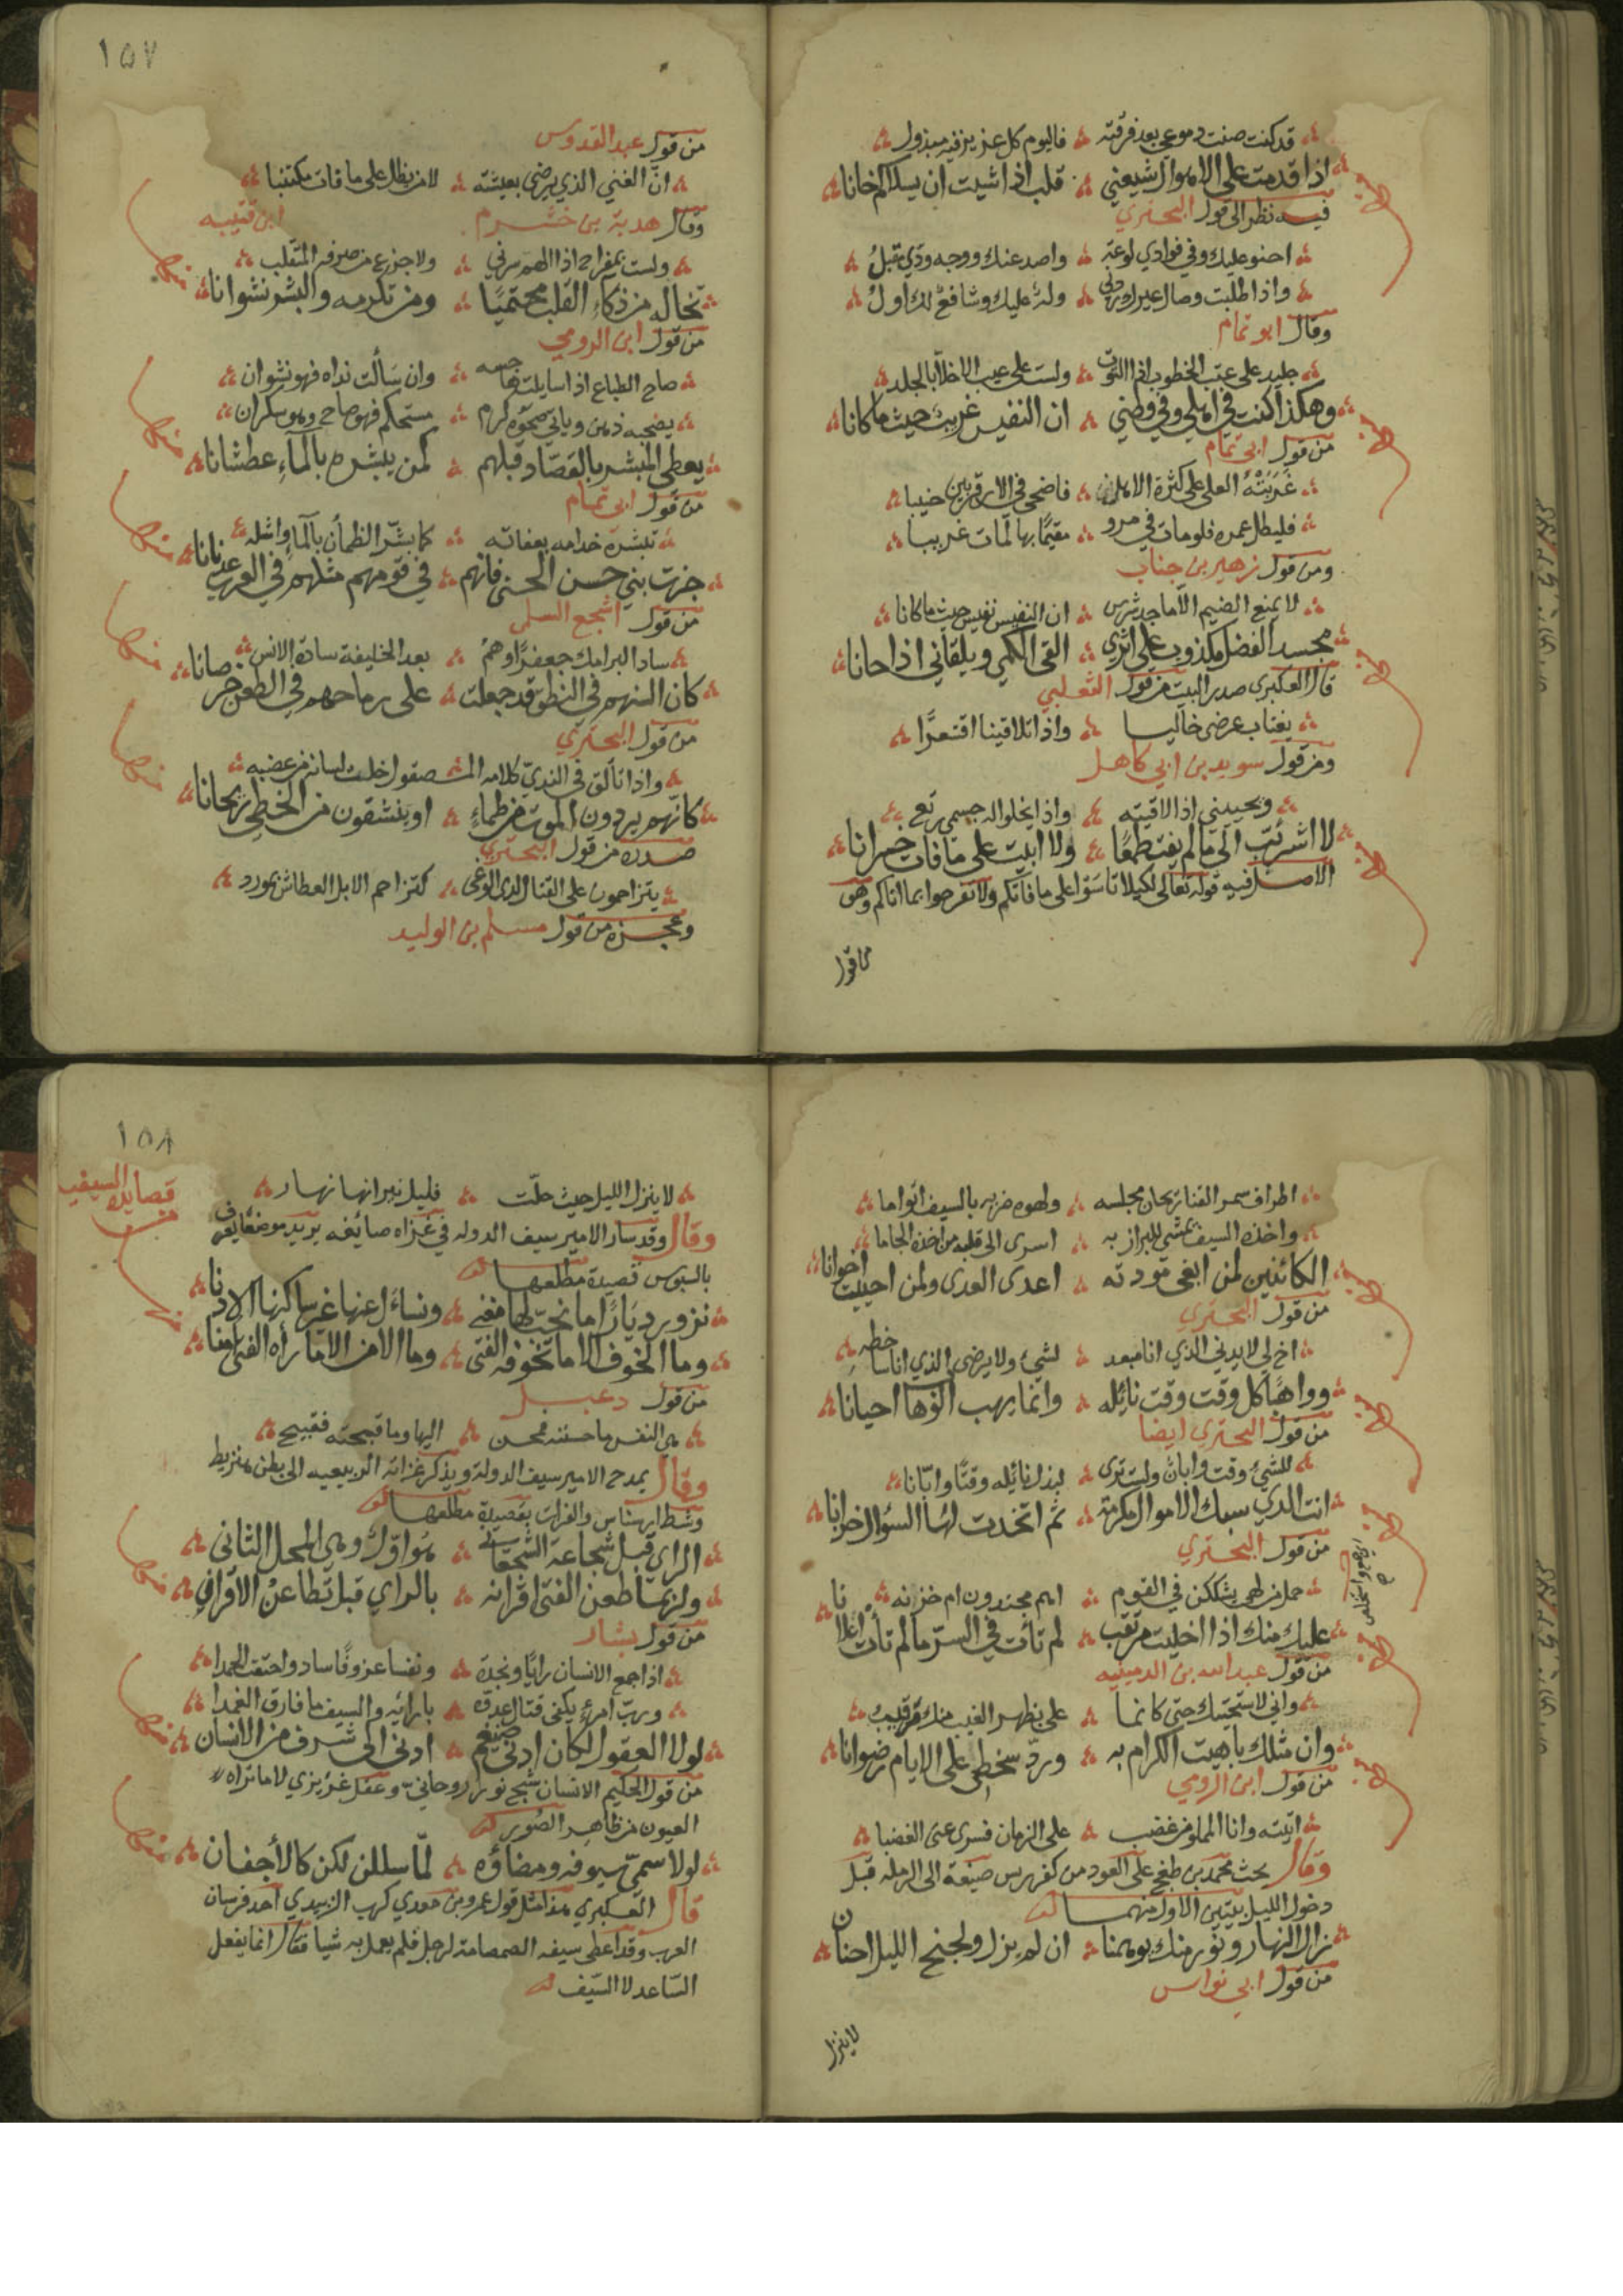 قد كنت صنت دموعي بعد فرقته فاليوم كل عزيز فيه مبذول
اذا قدمت على الاهوال شيعني قلب اذا شيت ان يسلاكم خانا
فيه نظر الى قول البحتري
احنو عليك وفي فوادي لوعة واصد عنك ووجه ودي مقبل
واذا طلبت وصال غيرك ردني وله عليك وشافع لك اول
وقال ابو تمام
جليد على عتب الخطوب اذا التوت ولست على عيب الاخلا بالجلد
وهكذا كنت في اهلي وفي وطني ان النفيس غريب حيث ما كانا
من قول ابي تمام
غربته العلى على كثرة الاهل فاضحى في الاقربين جنيبا
فليطل عمره فلو مات في مرو مقيمًا بها لمات غريبا
ومن قول زهير بن جناب
لا يمنع الضيم الا ماجد شرس ان النفيس نفيس حيث ما كانا
محسد الفضل مكذوب على اثري القى الكمي ويلقاني اذا حانا
قال العكبري صدر البيت من قول الثعلبي
يغتاب عرضي خاليا واذا تلاقينا اقشعرّا
ومن قول سويد بن ابي كاهل
ويحييني اذا لاقيته واذا يخلو له جسمي رتع
لا اشرئب الى ما لم يفت طمعًا ولا ابيت على ما فات حسرانا
الاصل فيه قوله تعالى لكيلا تاسوا على ما فاتكم ولا تفرحوا بما اتاكم وهو
ماقول
١٥٧
من قول عبد القدوس
ان الغني الذي يرضى بعيشته لا من يظل على ما فات مكتئبا
وقال هدبة بن خشرم
ابن قتيبه
ولست بمفراح اذا الدهر سرني ولا جزع من صرفه المتقلب
تخاله من ذكاء القلب محتميًا ومن تكرمه والبشر نشوانا
من قول ابن الرومي
صاح الطباع اذا سايلت هاجسه وان سألت نداه فهو نشوان
يصحيه ذهن ويابى صحوه كرم مستحكم فهو صاح وهو سكران
يعطي المبشر بالقصاد قبلهم كمن يبشره بالماء عطشانا
من قول ابي تمام
تبشره خدامه بعفاته كما بشر الظمأن بالماء واشله
جزت بني حسن الحسنى فانهم في قومهم مثلهم في الغر عدنانا
من قول اشجع السلمي
ساد البرامك جعفرًا وهم بعد الخليفة سادة الانس
كان السنهم في النطق قد جعلت على رماحهم في الطعن خرصانا
من قول البحتري
واذا تألق في الندي كلامه المصقول خلت لسانه من عضبه
كانهم يردون الموت من ظماء او ينشقون من الخطي ريحانا
صدره من قول البحتري
يتزاحمون على القتال لدى الوغى كتزاحم الابل العطاش بمورد
وعجزه من قول مسلم بن الوليد
اطراف سمر القنا ريحان مجلسه ولهوه ضربه بالسيف اقواما
واخذه السيف يمشي للبراز به اسرى الى قلبه من اخذه الجاما
الكائنين لمن ابغي مودته اعدى العدى ولمن احببت اخوانا
من قول البحتري
اخ لي لا يدني الذي انا مبعد لشيء ولا يرضى الذي انا ساخطه
وواهًا كل وقت وقت نائله وانما يهب الوها احيانا
من قول البحتري ايضا
للشيء وقت وابان ولست ترى لبذل نائله وقتًا وابانا
انت الذي سبك الاموال مكرمة ثم اتخذت لها السؤال خزانا
من قول البحتري
حملن لهي يشككن في القوم اهم مجتدون ام خزنه
عليك منك اذا اخليت مرتقب لم تأت في السر ما لم تأت اعلانا
من قول عبد الله بن الدمينيه
واني لاستحييك حتى كانما علي بظهر الغيب منك رقيب
وان مثلك باهيت الكرام به ورد سخطي على الايام رضوانا
من قول ابن الرومي
اتيته وانا المملو من غضب على الزمان فسرى عني الغضبا
وقال يحث محمد بن طغج على العود من كفر يس ضيعة الى الرمله قبل
دخول الليل بيتين الاول منهما
زال النهار ونور منك يوهمنا ان لم يزل ولجنح الليل احنان
من قول ابي نواس
لا ينزل
١٥٨
قصايد السيفيه
لا ينزل الليل حيث حلّت فليل نيرانها نهار
وقال وقد سار الامير سيف الدوله في غزاه صائفه يريد موضعًا يعرف
بالسبوس قصيدة مطلعها
نزور ديارًا ما نحب لها مغنى ونسأل عنها غير ساكنها الاذنا
وما الخوف الا ما تخوفه الفتى وما الامن الا ما رأه الفتى امنا
من قول دعبل
هي النفس ما حسنته فمحسن اليها وما قبحته فقبيح
وقال يمدح الامير سيف الدوله ويذكر غزاته الربيعيه الى بطن هنزيط
وشط ارسناس والفرات بقصيدة مطلعها
الراي قبل شجاعة الشجعان هو اول وهي المحل الثاني
ولربما طعن الفتى اقرانه بالراي قبل تطاعن الاقران
من قول بشار
اذا جمع الانسان رايًا ونجدة ونفسا عزوفًا ساد واحتقب الحمدا
ورب امرئ يكفي قتال عدوه بارائه والسيف ما فارق الغمدا
لولا العقول لكان ادنى ضيغم ادنى الى شرف من الانسان
من قول الحكيم الانسان شبح نور روحاني وعقل غريزي لا ما تراه
العيون من ظاهر الصور
لولا سمي سيوفه ومضاؤه لمّا سللن لكن كالأجفان
قال العكبري هذا مثل قول عمرو بن معدي كرب الزبيدي احد فرسان
العرب وقد اعطى سيفه الصمصامة لرجل فلم يعمل به شيا فقال انما يفعل
الساعد لا السيف